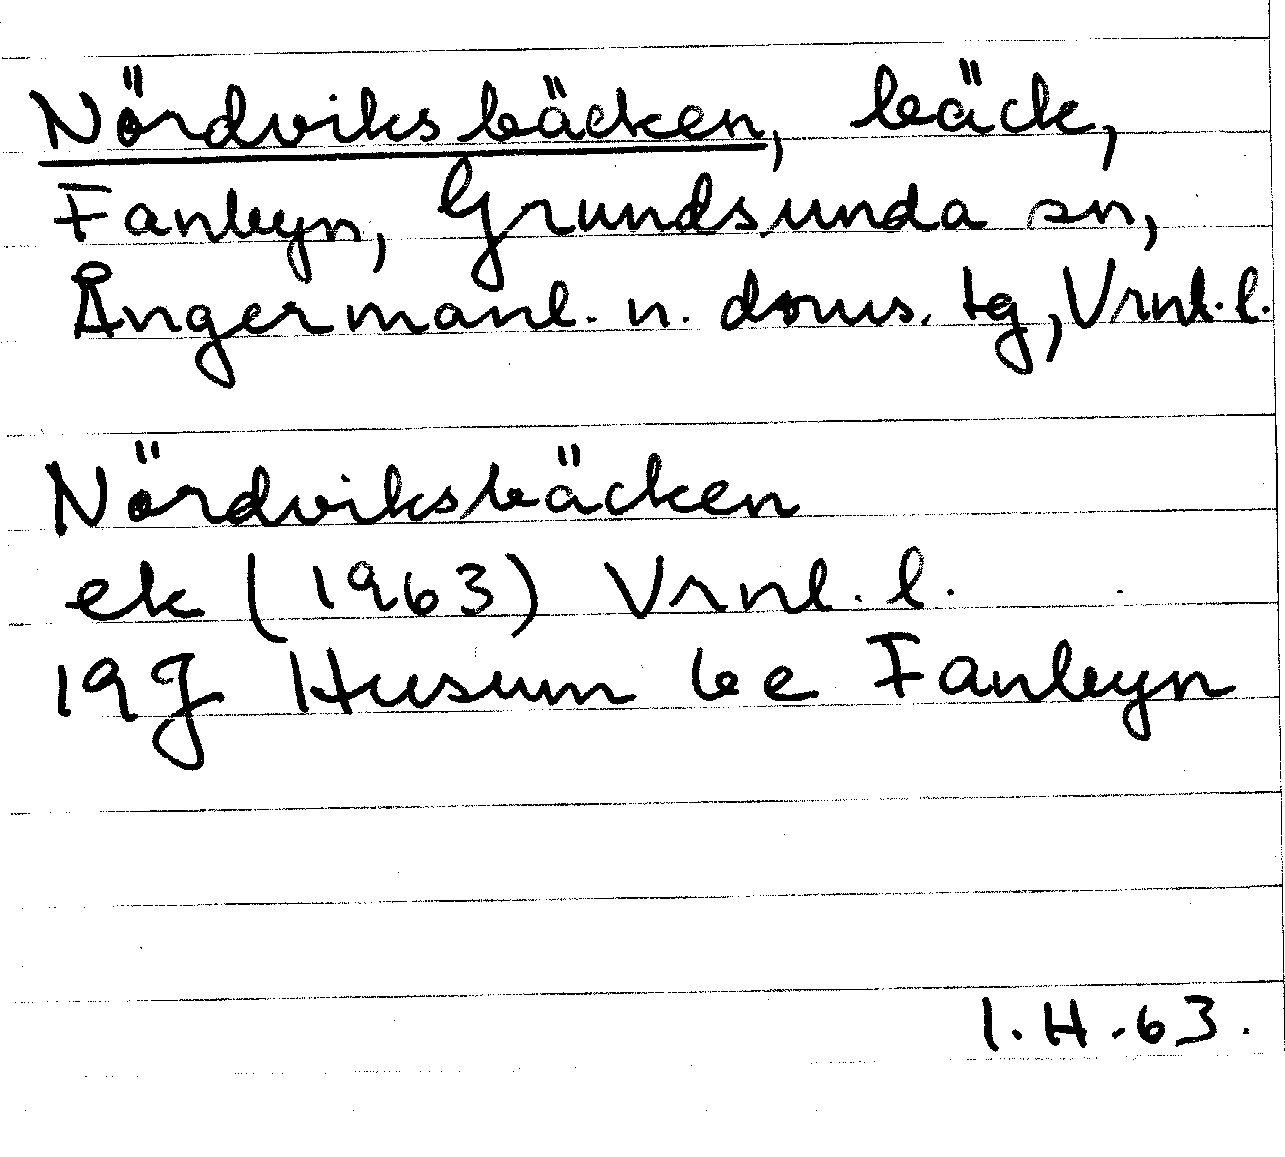 Nördviksbäcken, bäck,
Fanbyn, Grundsunda sn,
Ångermanl. n. doms. tg, Vrnl. l.
Nördviksbäcken
ek (1963) Vrnl. l.
19J Husum be Fanbyn
I. H. 63.